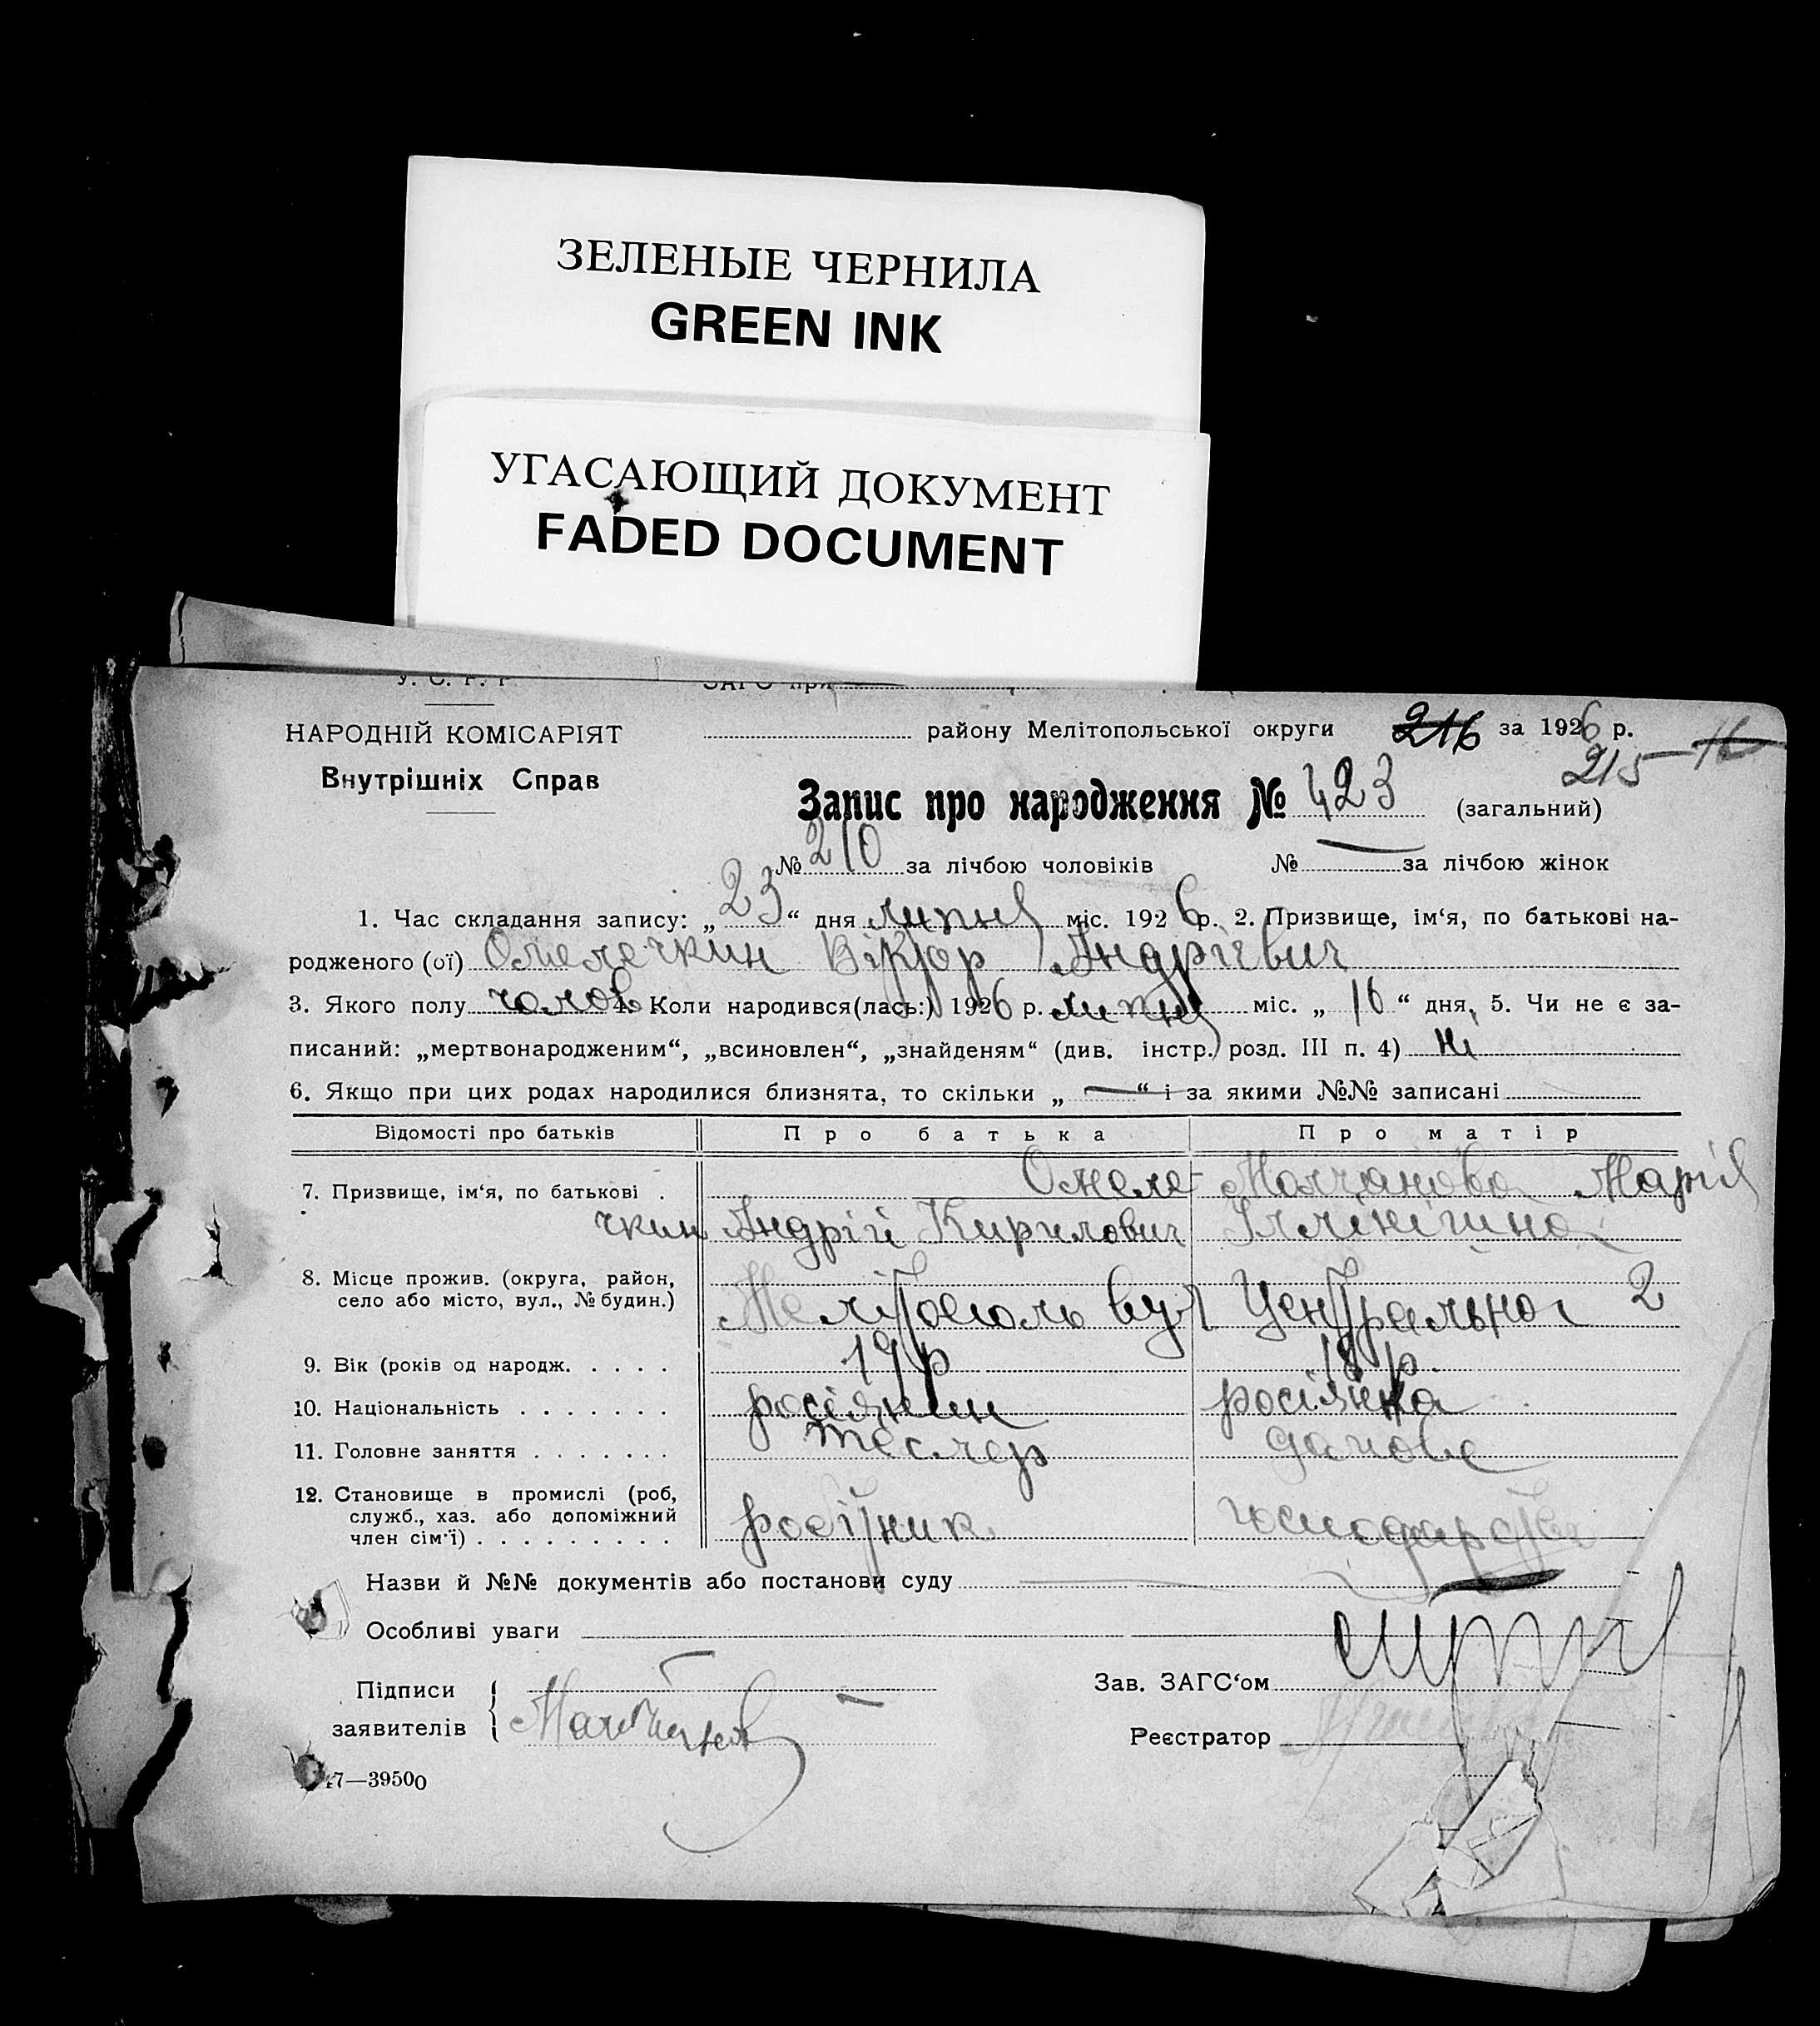 ЗЕЛЕНЫЕ ЧЕРНИЛА
GREEN INK
УГАСАЮЩИЙ ДОКУМЕНТ
FADED DOCUMENT
У. С. Р. Р. ЗАГС при
НАРОДНІЙ КОМІСАРІЯТ
Внутрішніх Справ
району Мелітопольської округи 216 за 1926 р.
215 16
Запис про народження № 423 (загальний)
№ 210 за лічбою чоловіків № — за лічбою жінок
1. Час складання запису: „23“ дня липня міс. 1926 р. 2. Призвище, ім‘я, по батькові на-
родженого (ої) Омелечкин Віктор Андрієвич
3. Якого полу чолов 4. Коли народився(лась:) 1926 р. липня міс. „16“ дня, 5. Чи не є за-
писаний: „мертвонародженим“, „всиновлен“, „знайденям“ (див. інстр. розд. III п. 4) ні
6. Якщо при цих родах народилися близнята, то скільки „—“ і за якими №№ записані
Відомості про батьків Про батька Про матір
7. Призвище, ім‘я, по батькові . Омеле- Молчанова Марія
чкин Андрій Кирилович
8. Місце прожив. (округа, район,
село або місто, вул., № будин.) Мелітополь вул Центральна 2
9. Вік (років од народж. . . . . 19 р 18 р.
10. Національність . . . . . . . росіянин росіянка
11. Головне заняття . . . . . . . тесляр домове
12. Становище в промислі (роб,
служб., хаз. або допоміжний
член сім‘ї) . . . . . . . . . робітник господарство
Назви й №№ документів або постанови суду
Особливі уваги
Підписи
заявителів
Зав. ЗАГС‘ом
Реєстратор
47—39500